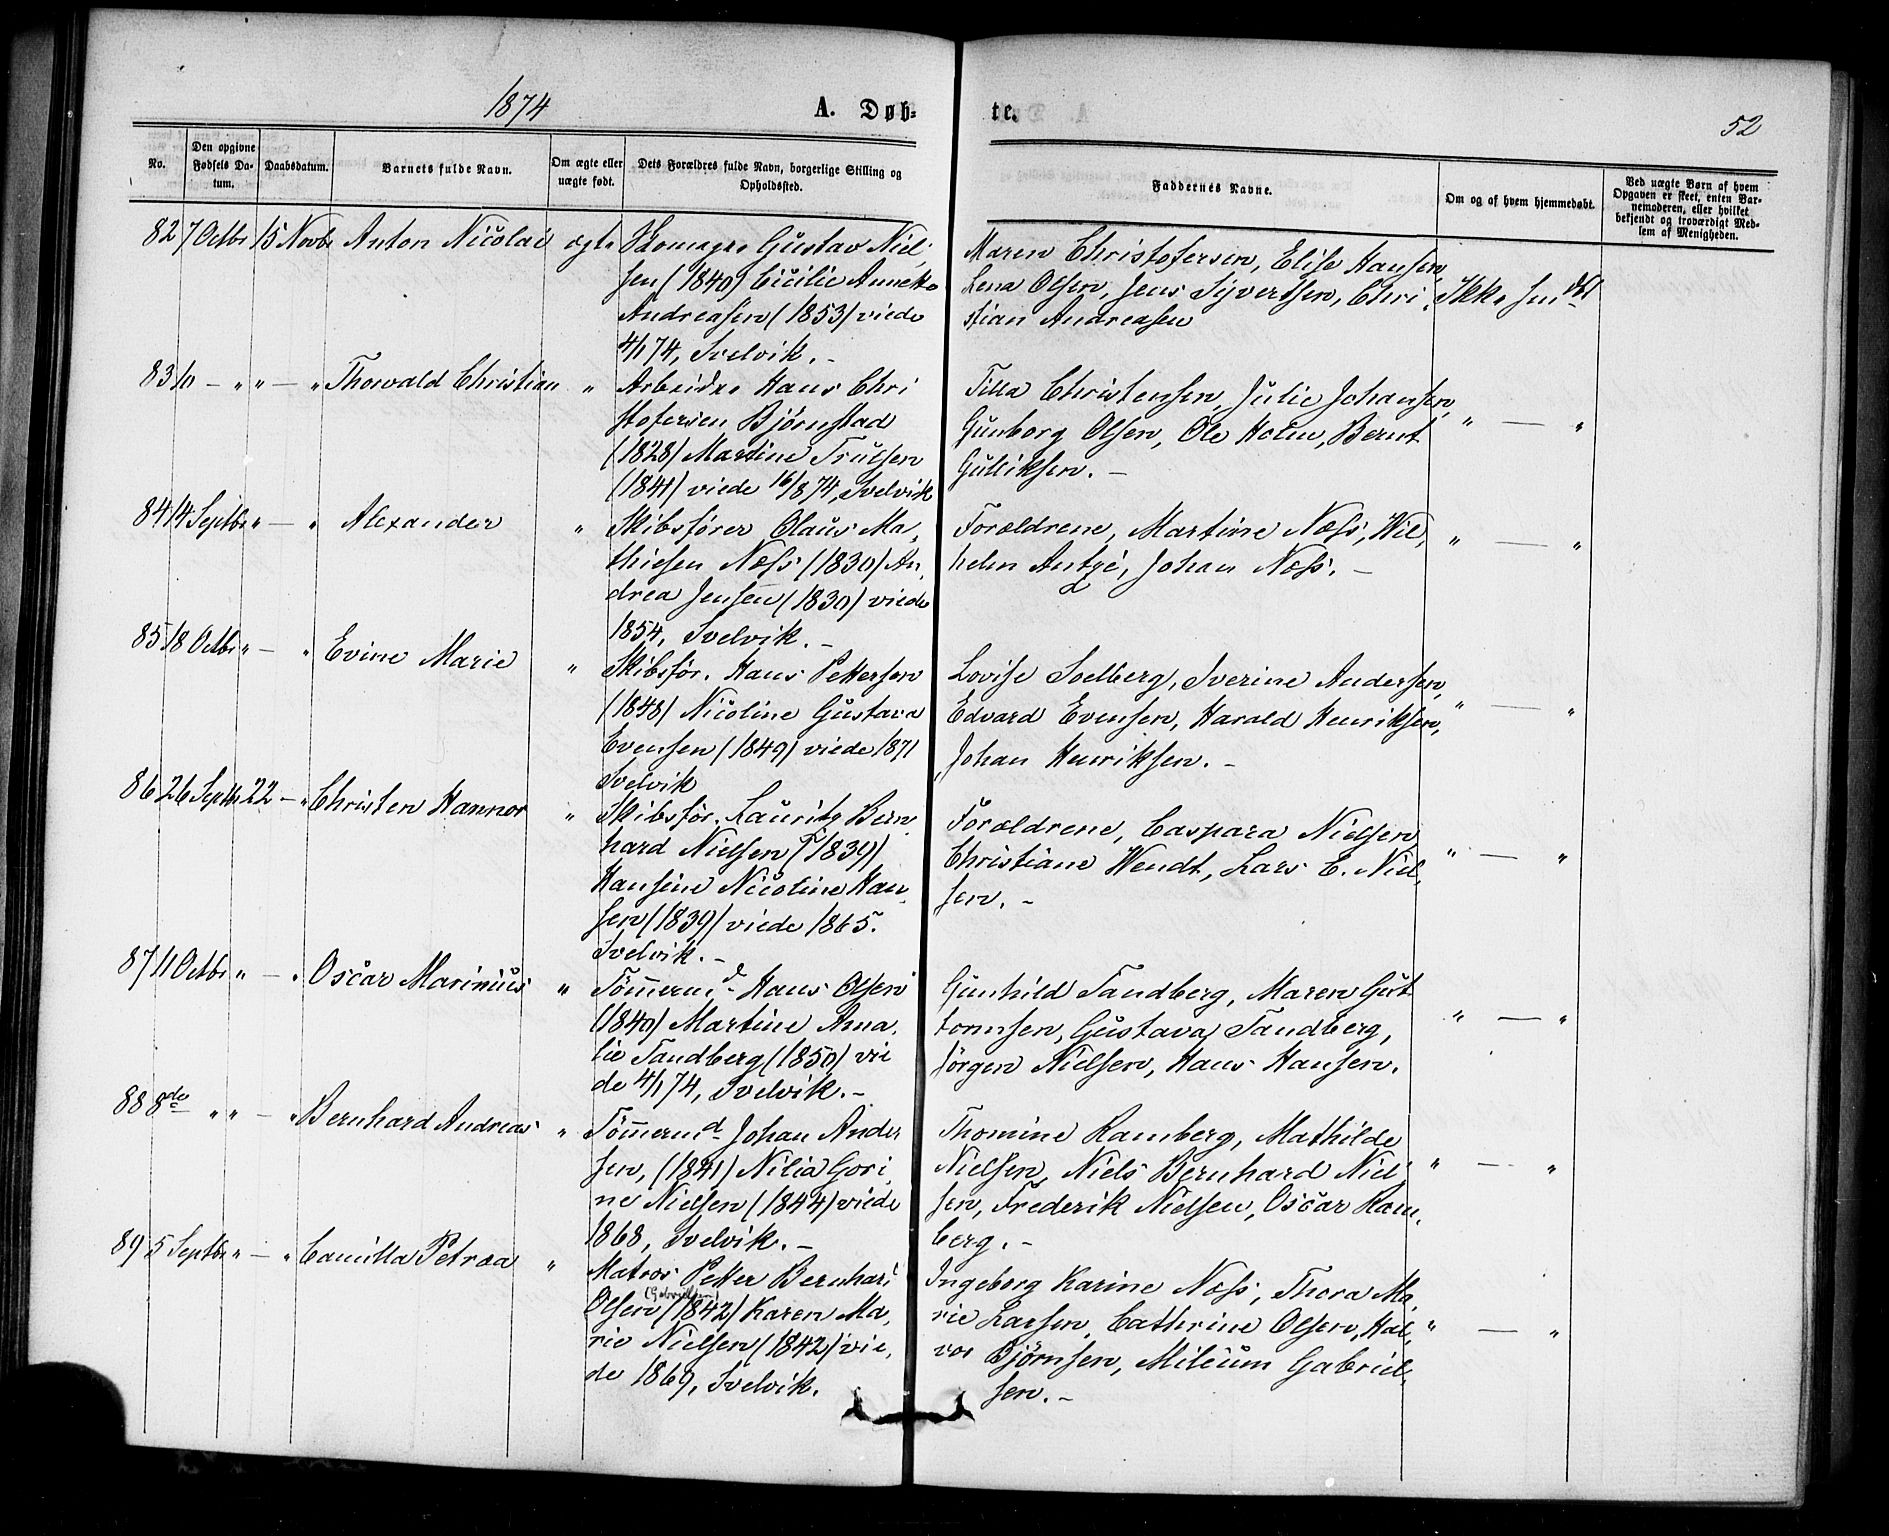 1874
A. Døb-
te.
52
No.
Den opgivne
Fødsels Da-
tum.
Daabsdatum.
Barnets fulde Navn.
Om ægte eller
uægte født.
Dets Forældres fulde Navn, borgerlige Stilling og
Opholdssted.
Faddernes Navne.
Om og af hvem hjemmedøbt.
Ved uægte Børn af hvem
Opgaven er skeet, enten Bar-
nemoderen, eller hvilket
bekjendt og troværdigt Med-
lem af Menigheden.
82 7 Octbr 15 Novbr Anton Nicolai ægte Skomagr Gustav Niel-
sen (1840) Cicilie Annette
Andreasen (1853) viede
4/1 74, Svelvik. -
Maren Christofersen, Elise Hansen,
Lena Olsen, Jens Syvertsen, Chri-
stian Andreasen
Ikke hmdbt
83 10 - " " - " Thorvald Christian " Arbeider Hans Chri
stofersen Bjørnstad
(1828) Martine Trulsen
(1841) viede 16/8 74, Svelvik
Tilla Christensen, Julie Johansen,
Gunborg Olsen, Ole Holm, Bernt
Gulliksen. -
" - "
84 14 Septbr " - " Alexander " Skibsfører Olaus Ma-
thiesen Næss (1830) An-
drea Jensen (1830) viede
1854, Svelvik. -
Forældrene, Martine Næss, Wil-
helm Antze, Johan Næss. -
" - "
85 18 Octbr " - " Evine Marie " Skibsfør. Hans Pettersen
(1848) Nicoline Gustava
Evensen (1849) viede 1871
Svelvik
Lovise Soelberg, Iverine Andersen,
Edvard Evensen, Harald Henriksen,
Johan Henriksen. -
" - "
86 26 Septbr 22 - " Christen Hannor " Skibsfør. Lauritz Bern
hard Nielsen (1839)
Hansine Nicoline Han-
sen (1839) viede 1865.
Svelvik. -
Forældrene, Caspara Nielsen
Christiane Wendt, Lars E. Niel-
sen. -
" - "
87 11 Octbr " - " Oscar Marinius " Tømermd Hans Olsen
(1840) Martine Ama-
lie Tandberg (1850) vie
de 4/1 74, Svelvik. -
Gunhild Tandberg, Maren Gut
tormsen, Gustava Tandberg,
Jørgen Nielsen, Hans Hansen.
" - "
88 8de " " - " Bernhard Andreas " Tømermd Johan Ander
sen, (1841) Nilia Gori-
ne Nielsen (1844) viede
1868, Svelvik. -
Thomine Ramberg, Mathilde
Nielsen, Niels Bernhard Niel-
sen, Frederik Nielsen, Oscar Ram-
berg. -
" - "
89 5 Septbr " - " Camilla Petrea " Matros Petter Bernhard
(Gabrielsen)
Olsen (1842) Karen Ma-
rie Nielsen (1842) vie-
de 1869, Svelvik.
Ingeborg Karine Næss, Thora Ma-
rie Larsen, Cathrine Olsen, Hal-
vor Bjørnsen, Mileum Gabriel-
sen. -
" - "